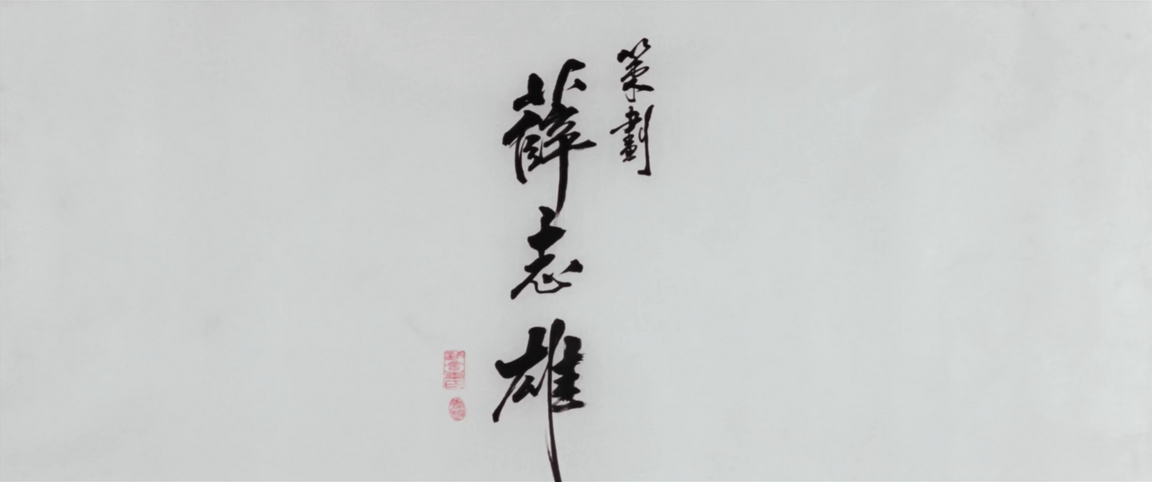 策劃
薛志雄